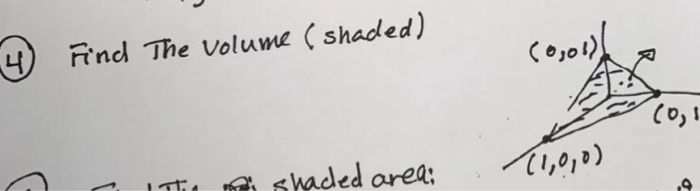 4 Find The Volume (shaded)
(0,01)
(0,1
(1,0,0)
shaded area: